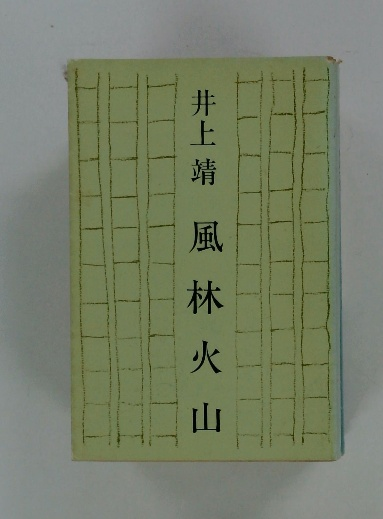 井上靖 風林火山